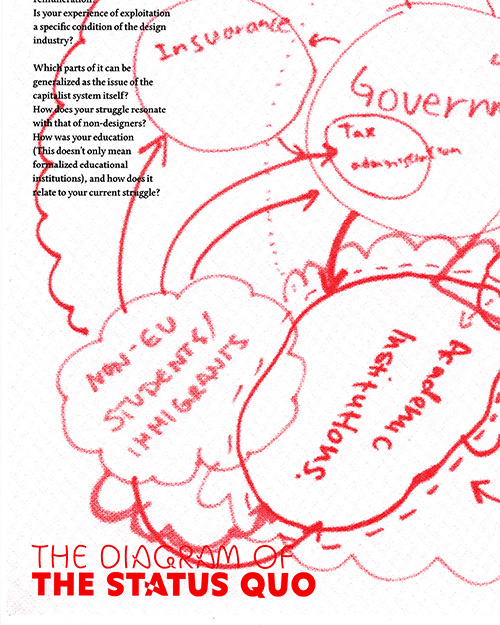 remuneration?
Is your experience of exploitation
a specific condition of the design
industry?
Which parts of it can be
generalized as the issue of the
capitalist system itself?
How does your struggle resonate
with that of non-designers?
How was your education
(This doesn't only mean
formalized educational
institutions), and how does it
relate to your current struggle?
Insuorance.
Governm
Tax
administration
NON-EU
STUDENTS/
IMMIGRANTS
Academic
Institutions.
THE DIAGRAM OF
THE STATUS QUO